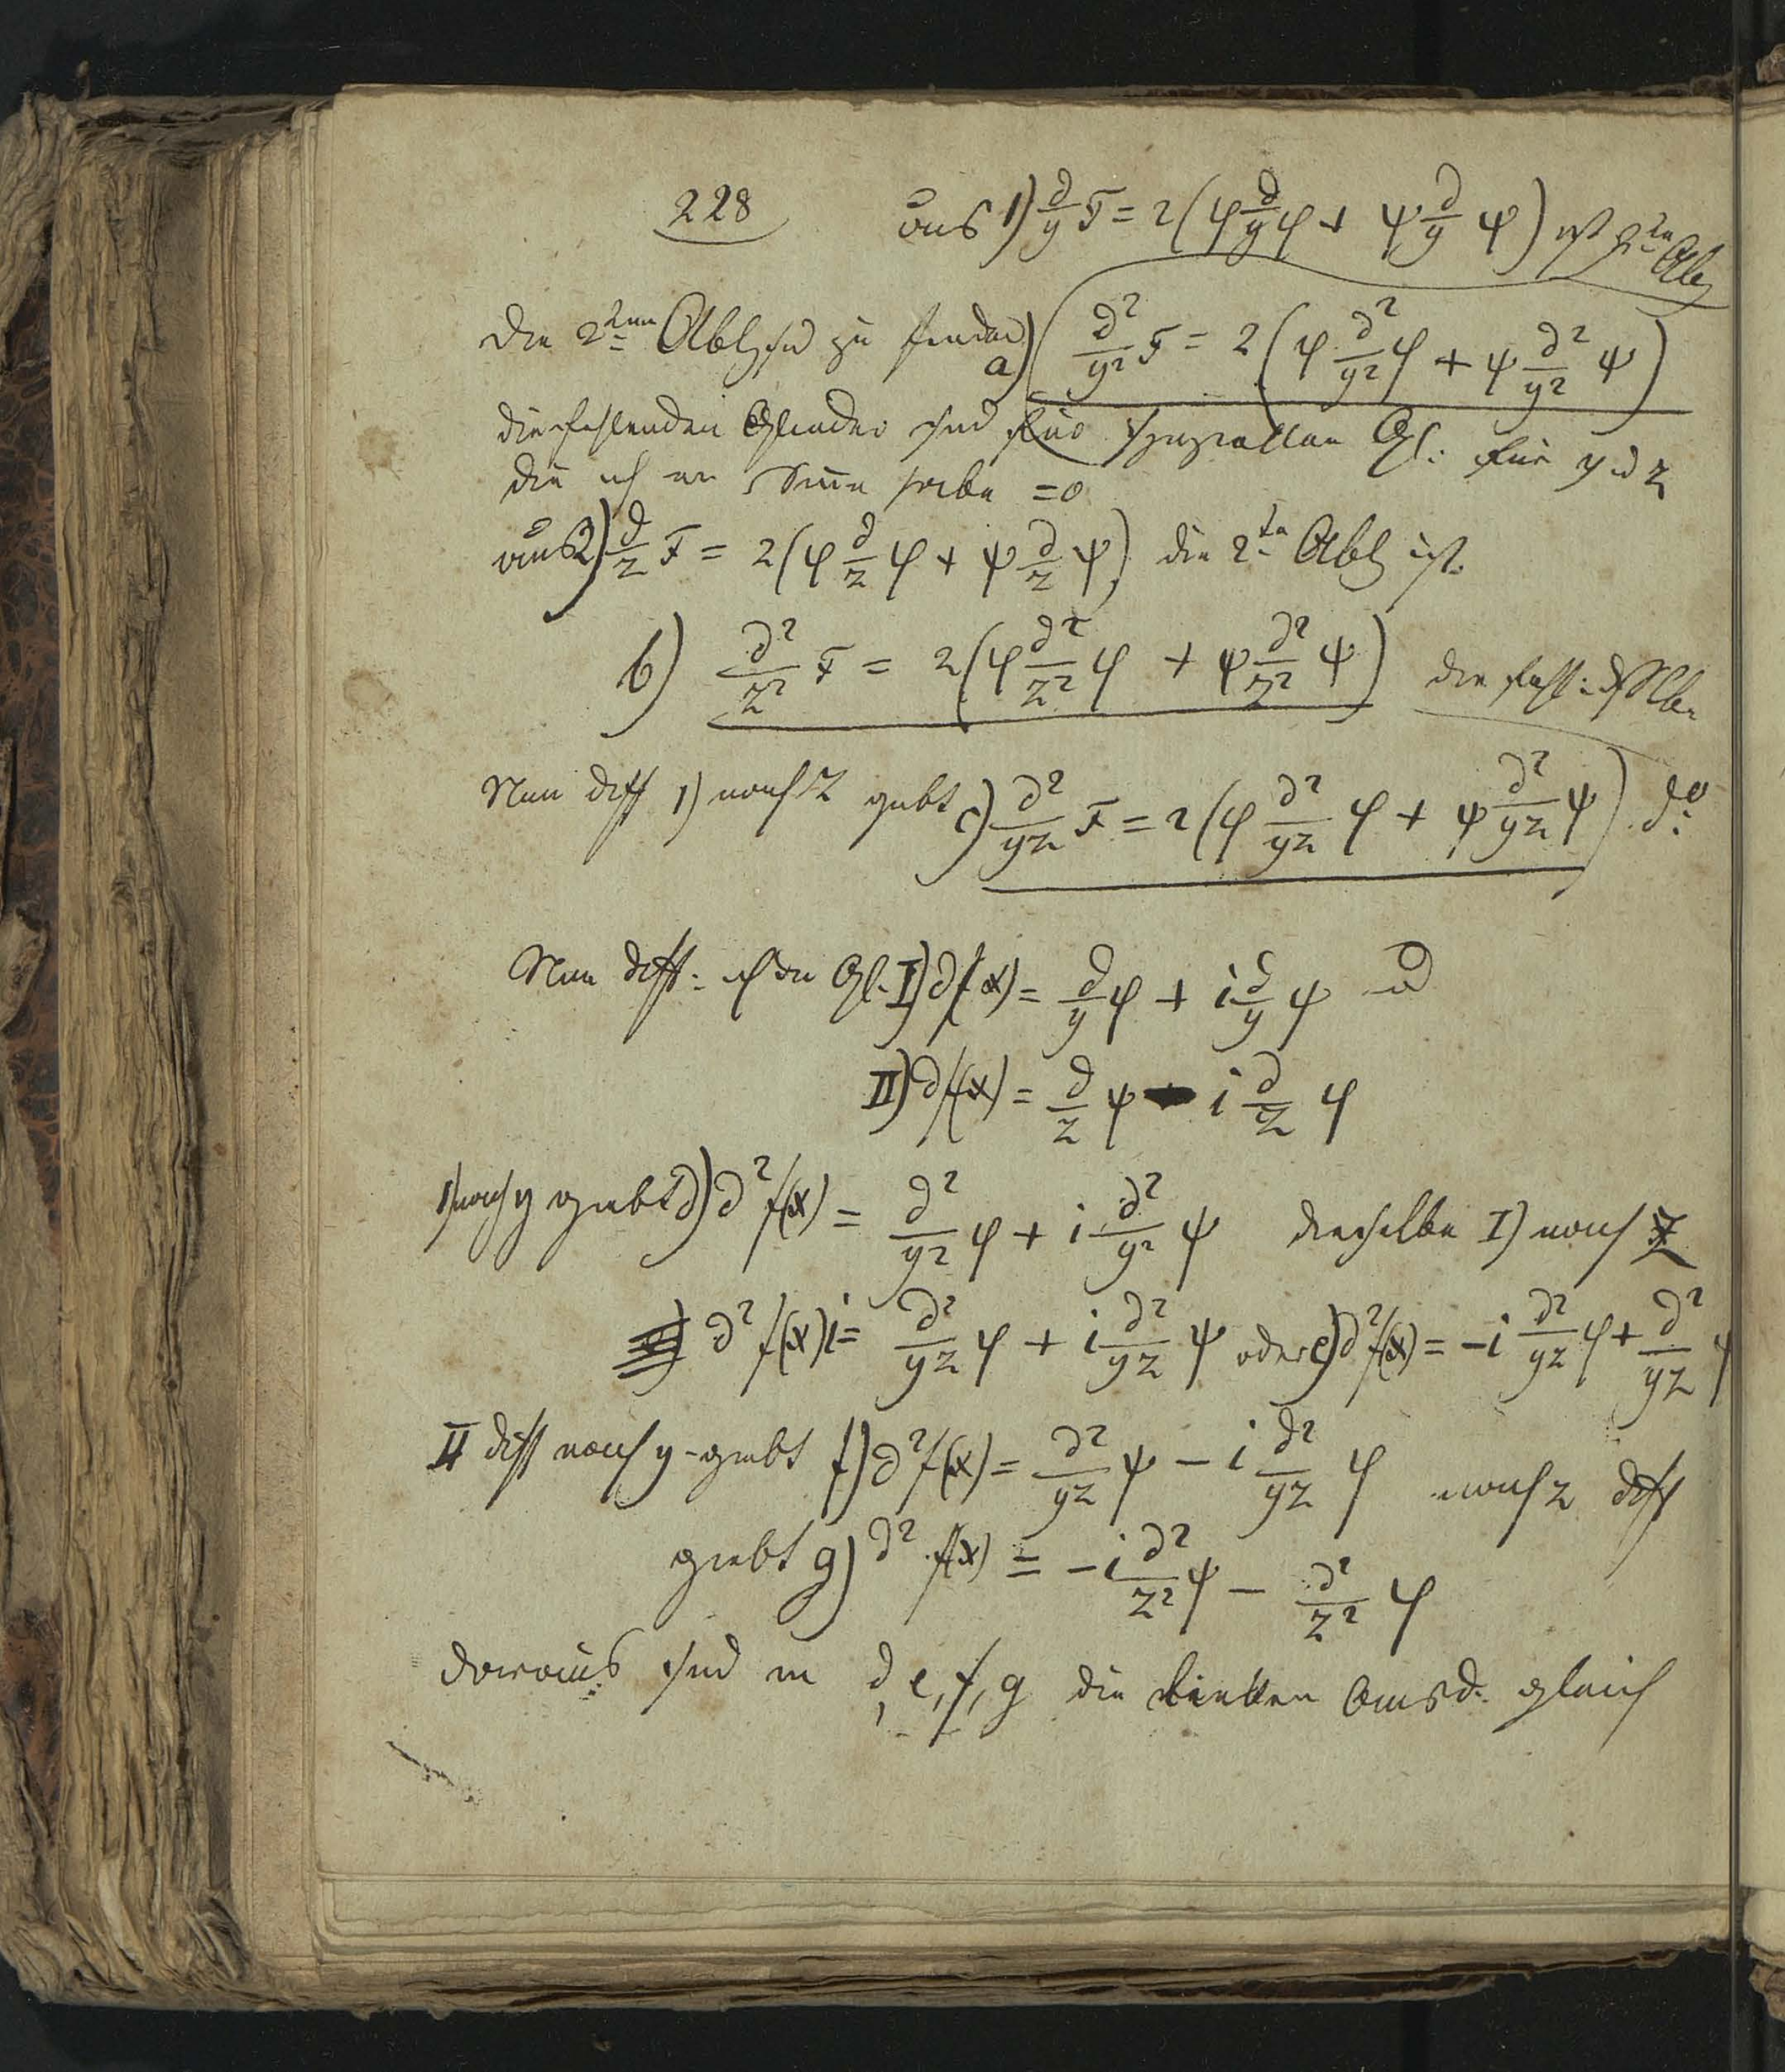 228 aus 1) ∂/y F = 2(φ ∂/y φ + ψ ∂/y ψ) ist 2te Abl
Die 2ten Abl sind zu finden a) ∂²/y² F = 2(φ ∂²/y² φ + ψ ∂²/y² ψ)
die fehlenden Glieder sind für speziellen Gl: für y u z
die ich im Sinne habe = 0
aus 2) ∂/z F = 2(φ ∂/z φ + ψ ∂/z ψ) die 2te Abl ist.
b) ∂²/z² F = 2(φ ∂²/z² φ + ψ ∂²/z² ψ) die
Nun diff 1) nach z giebt c) ∂²/yz F = 2(φ ∂²/yz φ + ψ ∂²/yz ψ) do:
Nun diff: ich die Gl. I) ∂f(x) = ∂/y φ + i ∂/y ψ u
II) ∂f(x) = ∂/z ψ - i ∂/z φ
I) nach y giebt d) ∂² f(x) = ∂²/y² φ + i ∂²/y² ψ dieselbe I) nach z
∂² f(x) i = ∂²/yz φ + i ∂²/yz ψ oder e) ∂² f(x) = -i ∂²/yz φ + ∂²/yz ψ
II diff nach y giebt f) ∂² f(x) = ∂²/yz ψ - i ∂²/yz φ nach z diff
giebt g) ∂² f(x) = -i ∂²/z² ψ - ∂²/z² φ
daraus sind in d, e, f, g die linken Ausd. gleich